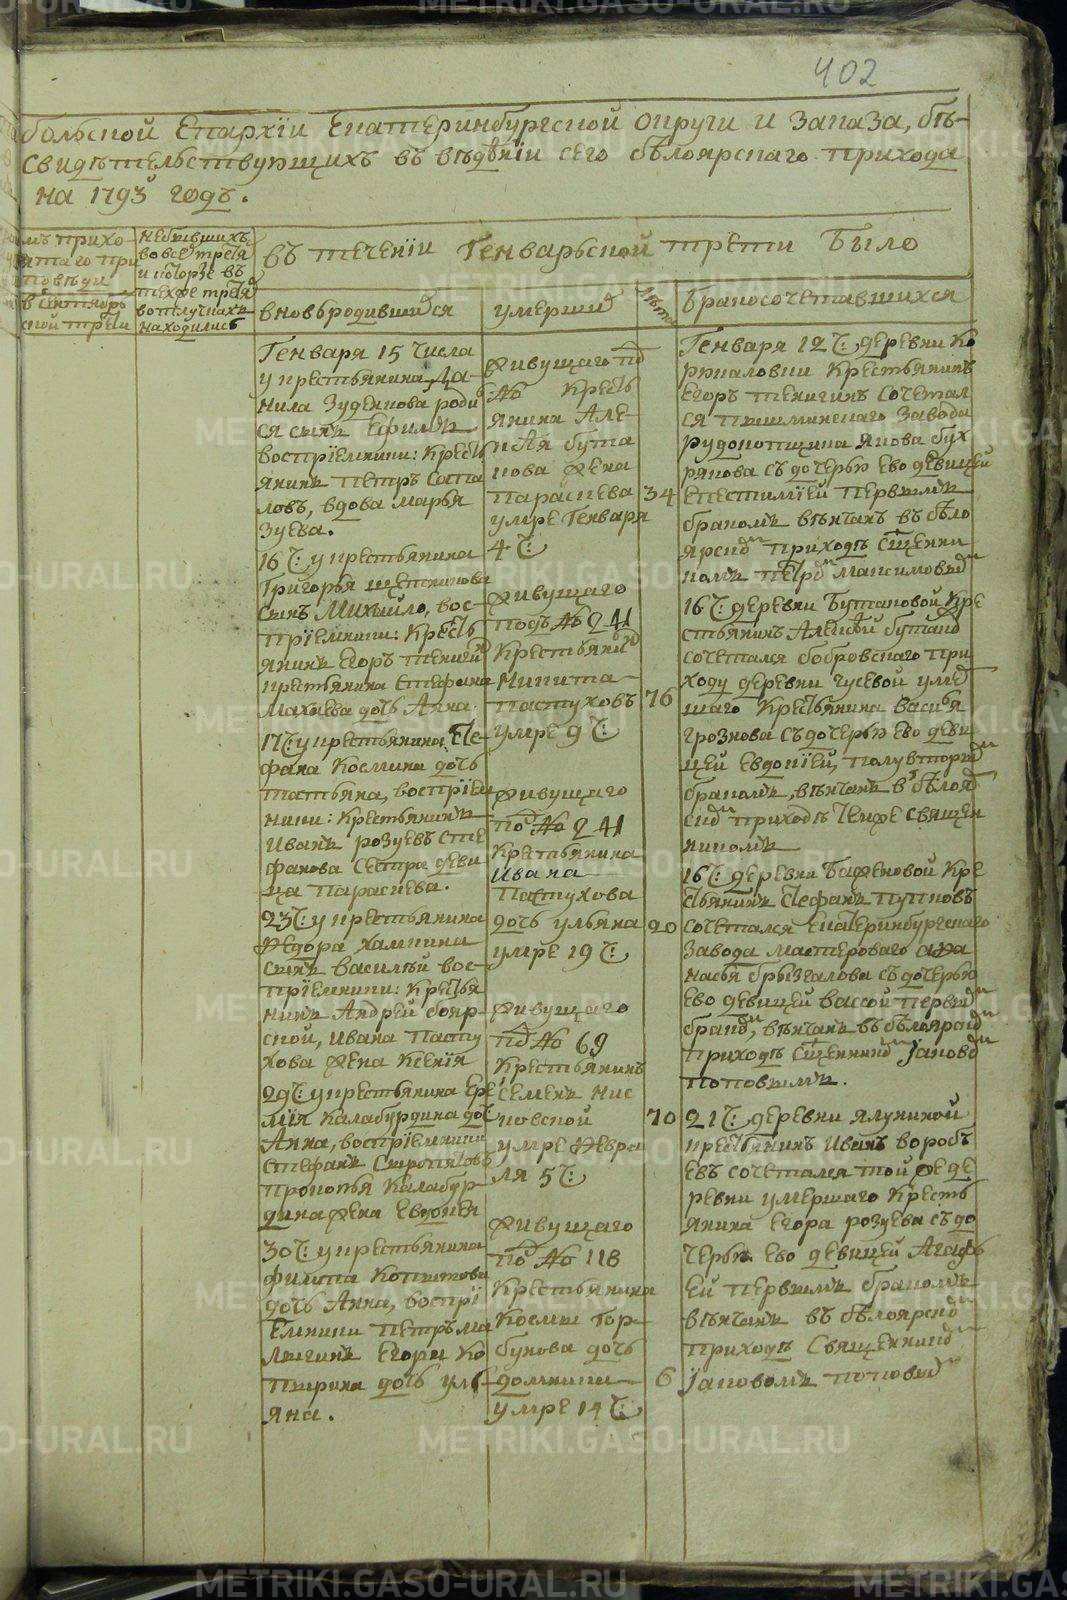 402
больской Епархїи Екатеринбургской округи и заказа, бъ-
свидѣтельствующихъ въ вѣденїи сего бѣлоярскаго прихода
на 1793 годъ.
мъ прихо-
таго при
повѣди
в Сентябрь
ской трети
небывшихъ
во все третя
и которые въ
техже третях
в отлучкахъ
находились
въ теченїи Генварьской трети было
вновьродившихся
умерших
лѣта
бракосочетавшихся
Генваря 15 числа
у крестьянина Да-
нила Зуденкова роди
ся сынъ Ефимъ
воспрїемники: кресть
янинъ Петръ
ловъ, вдова Марья
Зуева.
16 Ч: у крестьянина
Григорья Щетникова
сынъ Михайло, вос-
прїемники: Кресть
янинъ Егоръ Тенигин
крестьянина Стефана
Махнева дочь Анна.
17 Ч: у крестьянина Сте-
фана Космина дочь
Татьяна, воспрїем
ники: крестьянинъ
Иванъ Розуевъ Сте
фанова сестра деви
ца Параскева.
23 Ч: у крестьянина
Федора Хамкина
сынъ Василѣй вос-
прїемники: Крестья
нинъ Андрей бояр-
ской, Ивана Пасту
хова жена Ксенїя
29 Ч: у крестьянина Ере
мїя Калабурдина доч
Анна, воспрїемники
Стефанъ Сыропятовъ
Прокопья Калабур-
дина жена Евдокея
30 Ч: у крестьянина
Филипа Копытова
дочь Анна, воспрї
емники Петръ Ма
лыгинъ Егори Ко
птярина дочь Уль
яна.
живущаго под
№ Кресть
янина Але-
ксѣя Бута
кова жена
Параскева 34
умре Генваря
4 Ч:
живущаго
подъ № 241
Крестьянин
Никита
Пастуховъ 76
умре 9 Ч:
живущаго
под № 241
Крестьянина
Ивана
Пастухова
дочь Ульяна 20
умре 19 Ч:
живущаго
под № 69
Крестьянинъ
Семенъ Кис
ловской 70
умре февра
ля 5 Ч:
живущаго
под № 118
Крестьянина
Космы Гор-
бунова дочь
Домники 6
умре 14 Ч:
Генваря 12 Ч: деревни Ко
рюкаловки Крестьянинъ
Егоръ Тенигинъ сочетал
ся пышминскаго завода
рудокопщика Якова Бух
рякова съ дочерью ево девицей
Епестимїей первымъ
бракомъ венчанъ въ бѣло
ярском приходѣ Сщенни
комъ Петром Максимовым
16 Ч: деревни Бутаковой Кре
стьянинъ Алексѣй Бутаков
сочетался бобровскаго при
ходу деревни Гусевой умер
шаго Крестьянина Василья
Грознова съ дочерью ево деви
цей Евдокїей, полувторым
бракомъ, венчанъ в бѣлояр
ским приходѣ темже священ
никомъ
16 Ч: деревни Баженовой Кре
стьянинъ Стефанъ Пупковъ
сочетался Екатеринбургскаго
завода мастероваго Афа
насья Брызгалова съ дочерью
ево девицей Вассой первым
браком, венчанъ въ бѣлоярском
приходѣ Сщенником Iаковом
Поповымъ.
21 Ч: деревни Ялуниной
крестьянинъ Иванъ Воробь
евъ сочетался той же де
ревни умершаго Кресть
янина Егора Розуева съ до
черью ево девицей Агафь
ей первымъ бракомъ
венчанъ въ бѣлоярском
приходѣ Священником
Iаковомъ Поповым